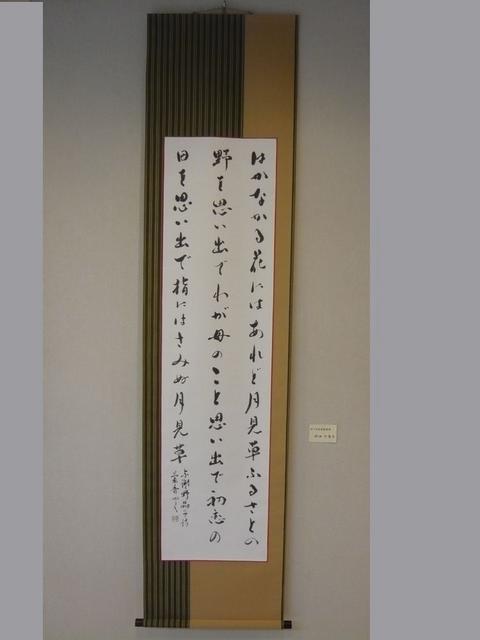 はかなかる花にはあれど月見草ふるさとの
野を思い出でわが母のこと思い出で初恋の
日を思い出で指にはさみぬ月見草
与謝野晶子詩